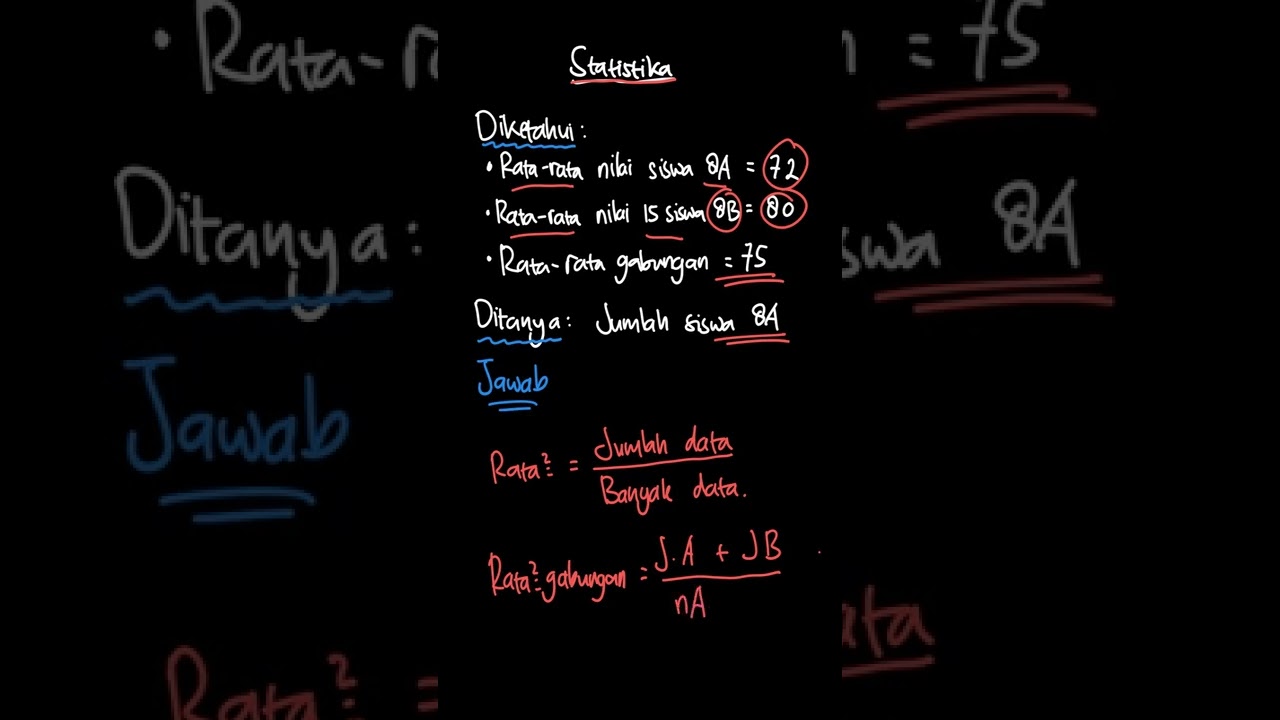 Statistika
Diketahui:
• Rata-rata nilai siswa 8A = 72
• Rata-rata nilai 15 siswa 8B = 80
• Rata-rata gabungan = 75
Ditanya: Jumlah siswa 8A
Jawab
Rata² = Jumlah data
Banyak data.
Rata² gabungan = J.A + JB
nA
• Rata-r
n = 75
Ditanya:
swa 8A
Jawab
Rata² =
ata